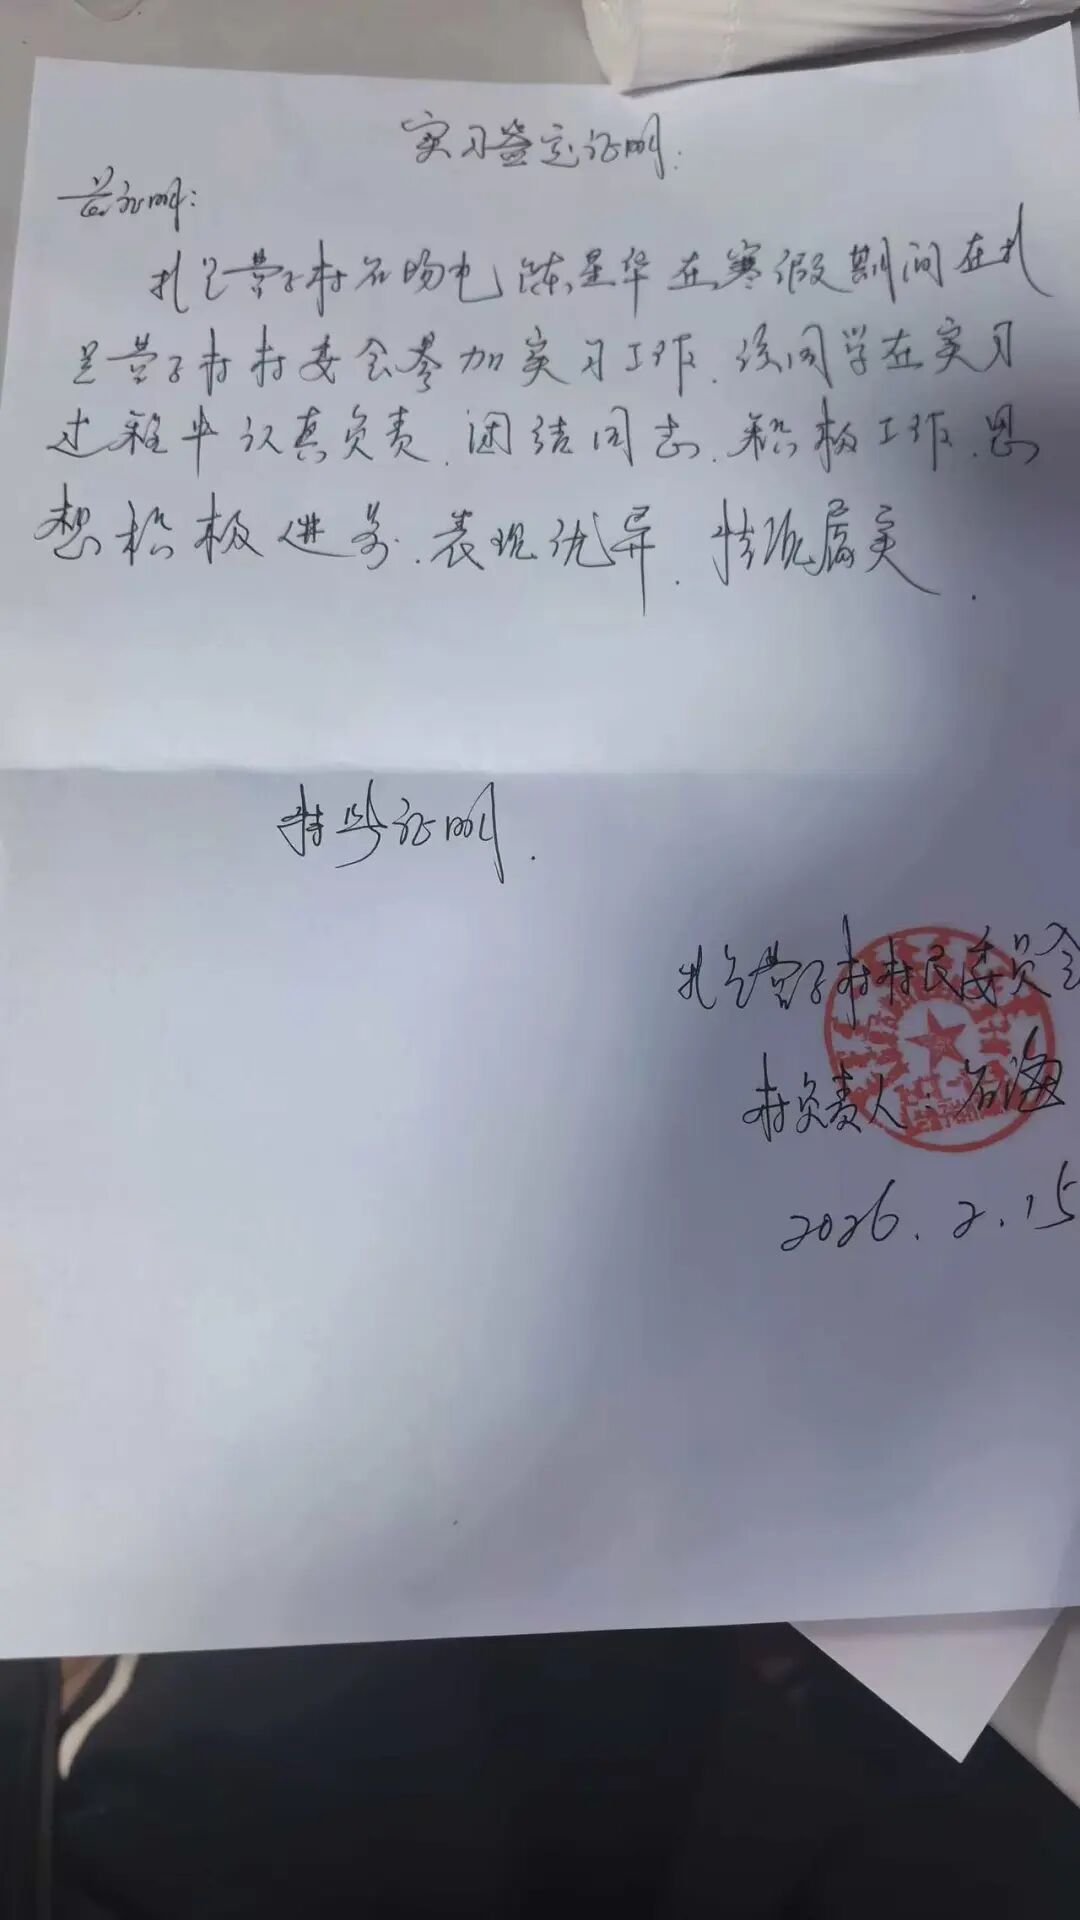 实习鉴定证明:
兹证明:
扎兰营子村石场屯陈星华在寒假期间在扎
兰营子村村委会参加实习工作.该同学在实习
过程中认真负责.团结同志.积极工作.思
想积极进步.表现优异.情况属实.
特此证明.
扎兰营子村村民委员会
村负责人:石海
2026.2.15